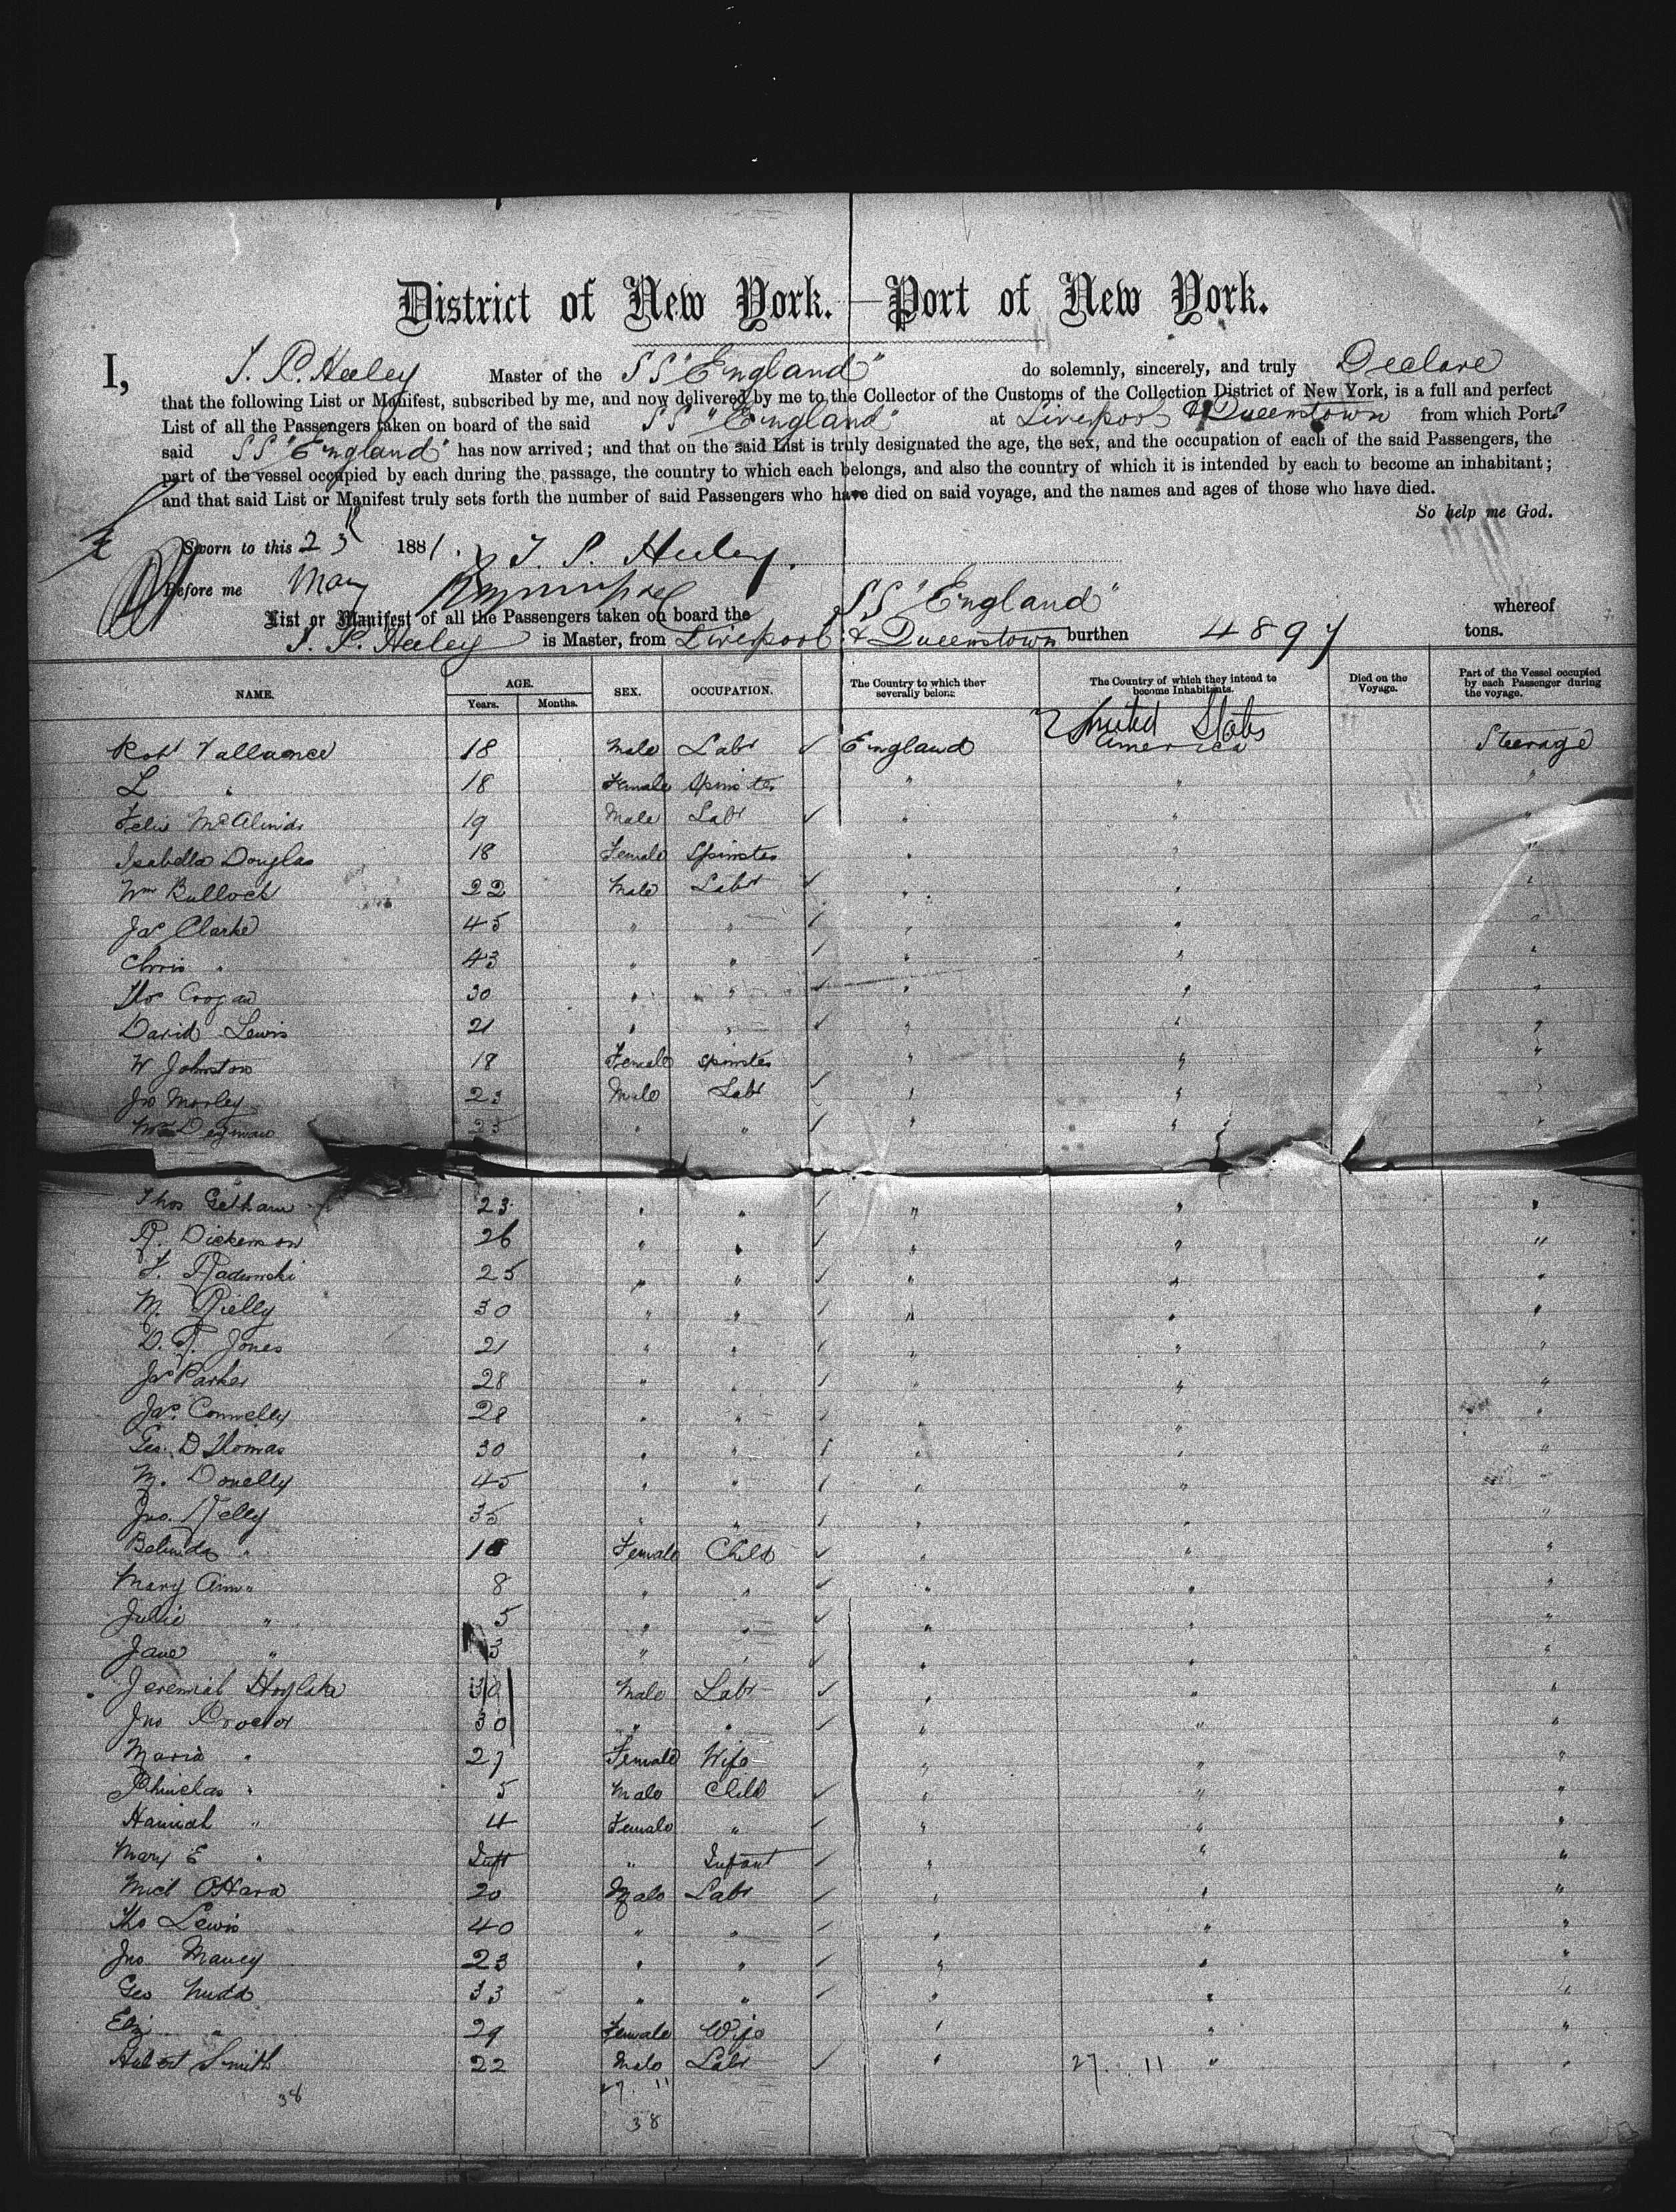 District of New York.—Port of New York.
I, T. P. Heeley Master of the SS "England" do solemnly, sincerely, and truly Declare
that the following List or Manifest, subscribed by me, and now delivered by me to the Collector of the Customs of the Collection District of New York, is a full and perfect
List of all the Passengers taken on board of the said SS "England" at Liverpool & Queenstown from which Ports
said SS "England" has now arrived; and that on the said List is truly designated the age, the sex, and the occupation of each of the said Passengers, the
part of the vessel occupied by each during the passage, the country to which each belongs, and also the country of which it is intended by each to become an inhabitant;
and that said List or Manifest truly sets forth the number of said Passengers who have died on said voyage, and the names and ages of those who have died.
So help me God.
Sworn to this 25 1881. T. P. Heeley.
Before me May
List or Manifest of all the Passengers taken on board the SS "England" whereof
T. P. Heeley is Master, from Liverpool & Queenstown burthen 4897 tons.
NAME. AGE. Years. Months. SEX. OCCUPATION. The Country to which they severally belong. The Country of which they intend to become Inhabitants. Died on the Voyage. Part of the Vessel occupied by each Passenger during the voyage.
United States
Robt Vallance 18 Male Labr ✓ England America Steerage
L " 18 Female Spinster " " "
Felix 19 Male Labr ✓ " " "
Isabella Douglas 18 Female Spinster " " "
Wm Bulloch 22 Male Labr ✓ " " "
Jas Clarke 45 " " ✓ " " "
Chris " 43 " " ✓ " " "
Thos Crogan 30 " " ✓ " " "
David Lewis 21 " " ✓ " " "
W Johnston 18 Female Spinster " " "
Jno Morley 23 Male Labr ✓ " " "
23 " " ✓ " " "
Thos Getham 23 " " ✓ " " "
R. Dickenson 26 " " ✓ " " "
F. Radomski 25 " " ✓ " " "
M. Rielly 30 " " ✓ " " "
D. T. Jones 21 " " ✓ " " "
Jas Parker 28 " " ✓ " " "
Jas. Connelly 28 " " ✓ " " "
Geo. D Thomas 30 " " ✓ " " "
M. Donelly 45 " " ✓ " " "
Jno. Kelly 35 " " ✓ " " "
Belinda " 10 Female Child ✓ " " "
Mary Ann " 8 " " ✓ " " "
Julie " 5 " " ✓ " " "
Jane " 3 " " ✓ " " "
Jeremiah Hoylake 30 Male Labr ✓ " " "
Jno Proctor 30 " " ✓ " " "
Maria " 27 Female Wife " " "
Phinehas " 5 Male Child ✓ " " "
Hannah " 4 Female " ✓ " " "
Mary E " Inft " Infant ✓ " " "
Mich O'Hara 20 Male Labr ✓ " " "
Tho Lewis 40 " " ✓ " " "
Jno Maney 23 " " ✓ " " "
Geo Nudd 33 " " ✓ " " "
Eliz " 29 Female Wife " " "
Hubert Smith 22 Male Labr ✓ " 27. 11 " "
38 27. 11
38